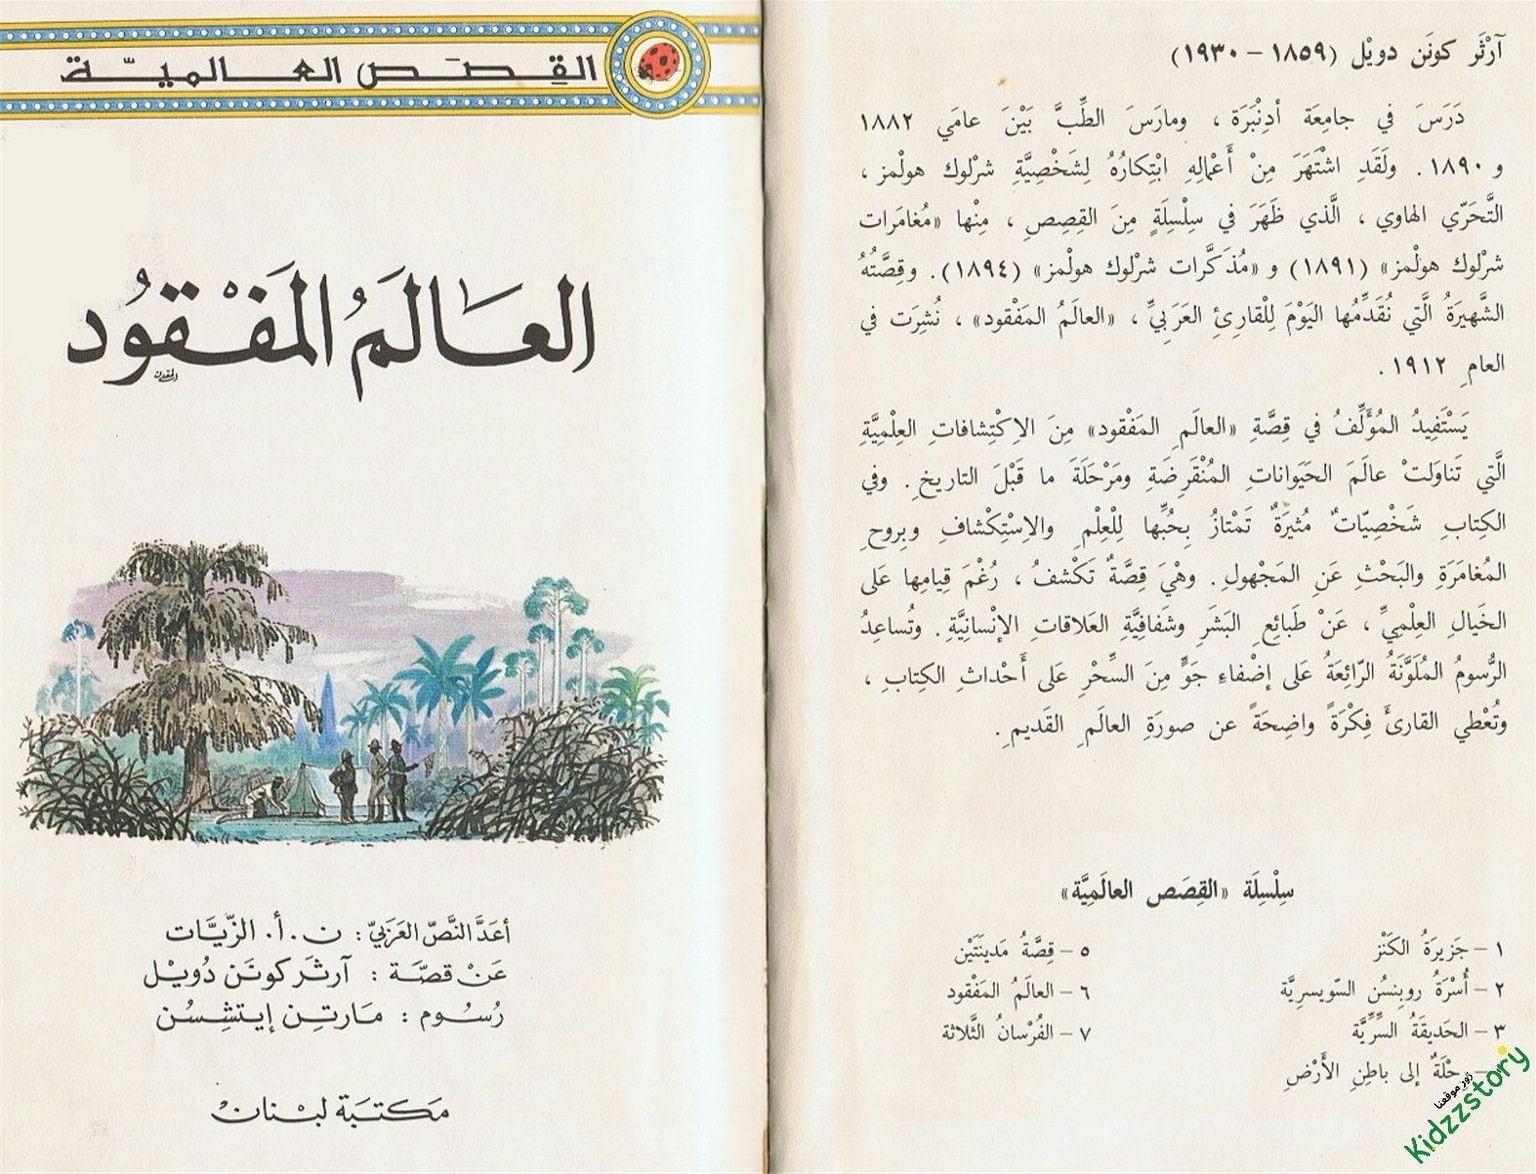 آرْثَر كونَن دويْل (١٨٥٩ – ١٩٣٠)
دَرَسَ في جامِعَة أدِنْبَرَة ، ومارَسَ الطِّبَّ بَيْنَ عامَي ١٨٨٢
و ١٨٩٠ . ولَقَدِ اشْتَهَرَ مِنْ أَعْمالِهِ ابْتِكارُهُ لِشَخْصِيَّةِ شرْلوك هولْمز ،
التَّحَرّي الهاوي ، الَّذي ظَهَرَ في سِلْسِلَةٍ مِنَ القِصِصِ ، مِنْها «مُغامَرات
شرْلوك هولْمز» (١٨٩١) و «مُذَكَّرات شرْلوك هولْمز» (١٨٩٤). وقِصَّتُهُ
الشَّهيرَةُ الَّتي نُقَدِّمُها اليَوْمَ لِلْقارِئِ العَرَبِيِّ ، «العالَمُ المَفْقود» ، نُشِرَت في
العامِ ١٩١٢ .
يَسْتَفِيدُ المُؤَلِّفُ في قِصَّةِ «العالَمِ المَفْقود» مِنَ الاِكْتِشافاتِ العِلْمِيَّةِ
الَّتي تَناوَلَتْ عالَمَ الحَيَواناتِ المُنْقَرِضَةِ ومَرْحَلَةَ ما قَبْلَ التاريخِ . وفي
الكِتابِ شَخْصِيّاتٌ مُثيرَةٌ تَمْتازُ بِحُبِّها لِلْعِلْمِ والاِسْتِكْشافِ وبِروحِ
المُغامَرَةِ والبَحْثِ عَنِ المَجْهولِ . وهْيَ قِصَّةٌ تَكْشفُ ، رُغْمَ قِيامِها عَلى
الخَيالِ العِلْمِيِّ ، عَنْ طَبائِعِ البَشَرِ وشَفافِيَّةِ العَلاقاتِ الإنْسانِيَّةِ . وتُساعِدُ
الرُّسومُ المُلَوَّنَةُ الرّائِعَةُ عَلى إضْفاءِ جَوٍّ مِنَ السِّحْرِ عَلى أَحْداثِ الكِتابِ ،
وتُعْطي القارئَ فِكْرَةً واضِحَةً عن صورَةِ العالَمِ القَديمِ .
سِلْسِلَة «القِصَص العالَمِيَّة»
١ – جَزيرَةُ الكَنْز
٢ – أُسْرَةُ روبِنسُن السّويسرِيَّة
٣ – الحَديقَةُ السِّرِّيَّة
رِحْلَةٌ إلى باطِنِ الأَرْضِ
٥ – قِصَّةُ مَدينَتَيْن
٦ – العالَمُ المَفْقود
٧ – الفُرْسانُ الثَّلاثة
زور موقعنا
Kidzzstory
القِصَص العالميّة
العالَمُ المَفْقُود
أعَدَّ النَّصّ العَرَبيّ : ن . أ . الزّيَّات
عَنْ قصّة : آرثَر كونَن دُويْل
رُسُوم : مَارتِن إيتشِسُن
مَكتبَة لبْنان